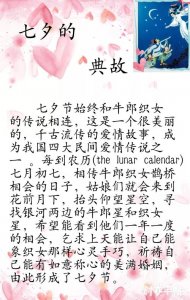 七夕的
典故
七夕节始终和牛郎织女
的传说相连，这是一个很美丽
的，千古流传的爱情故事，成
为我国四大民间爱情传说之
一。每到农历(the lunar calendar)
七月初七，相传牛郎织女鹊桥
相会的日子，姑娘们就会来到
花前月下，抬头仰望星空，寻
找银河两边的牛郎星和织女
星，希望能看到他们一年一度
的相会，乞求上天能让自己能
象织女那样心灵手巧，祈祷自
己能有如意称心的美满婚姻，
由此形成了七夕节。